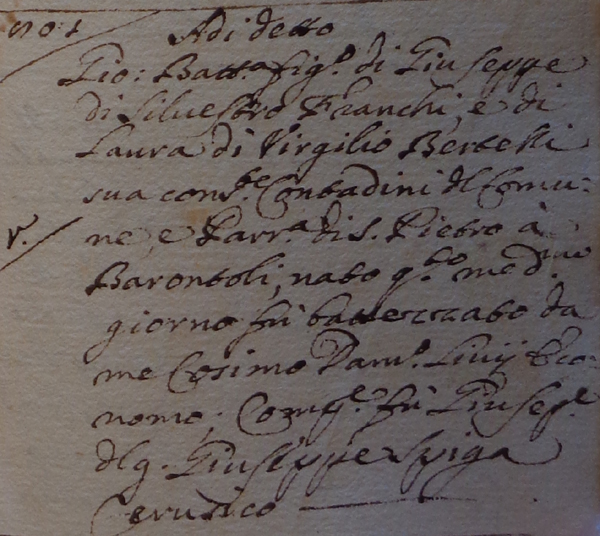 Adi detto
Gio: Batt.a fig.o di Giuseppe
di Silvestro Franchi, e di
Laura di Virgilio Bertelli
sua cons.te Contadini del Comu:
ne, e Parr.a di S. Pietro à
Barontoli, nato q.to med.mo
giorno fù battezzato da
me Cosimo Eco:
nomo; Comp.e fù Giusep.e
del q. Giuseppe Spiga
Cerusico